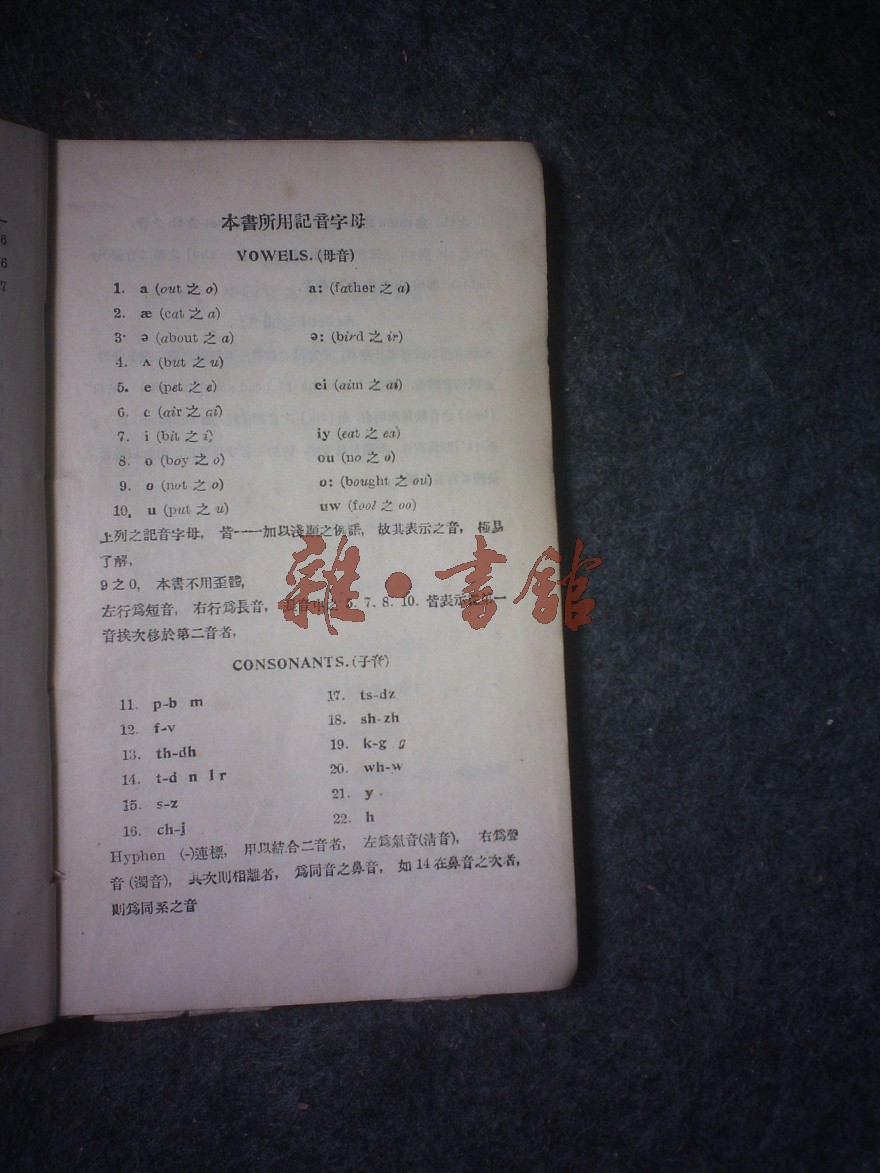 本書所用記音字母
VOWELS.(母音)
1. a (out 之 o) a: (father 之 a)
2. æ (cat 之 a)
3. ə (about 之 a) ə: (bird 之 ir)
4. ʌ (but 之 u)
5. e (pet 之 e) ei (aim 之 ai)
6. ɛ (air 之 ai)
7. i (bit 之 i) iy (eat 之 ea)
8. o (boy 之 o) ou (no 之 o)
9. o (not 之 o) o: (bought 之 ou)
10. u (put 之 u) uw (fool 之 oo)
上列之記音字母, 皆一一加以淺顯之例語, 故其表示之音, 極易
了解,
9之0, 本書不用歪體,
左行爲短音, 右行爲長音, 5. 7. 8. 10. 皆表示從第一
音挨次移於第二音者,
CONSONANTS.(子音)
11. p-b m 17. ts-dz
12. f-v 18. sh-zh
13. th-dh 19. k-g g
14. t-d n l r 20. wh-w
15. s-z 21. y
16. ch-j 22. h
Hyphen (-)連標, 用以結合二音者, 左爲氣音(清音), 右爲聲
音(濁音), 其次則相離者, 爲同音之鼻音, 如14在鼻音之次者,
則爲同系之音
雜·書館
6
6
7